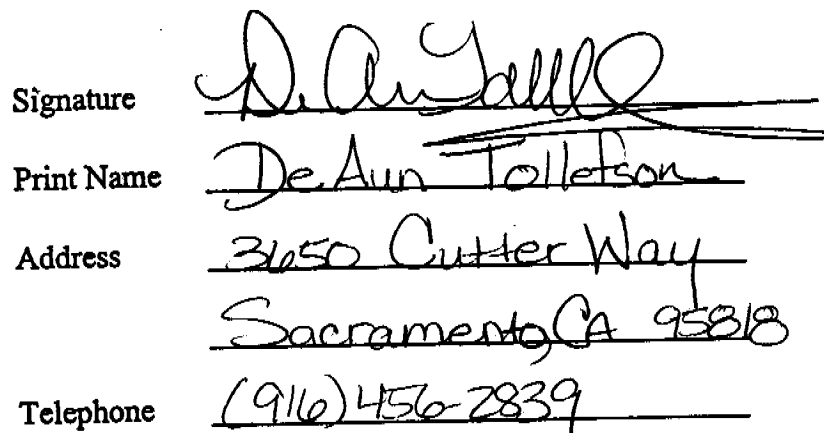 Signature
Print Name DeAun Tollefson
Address 3650 Cutter Way
Sacramento, CA 95818
Telephone (916) 456-2839